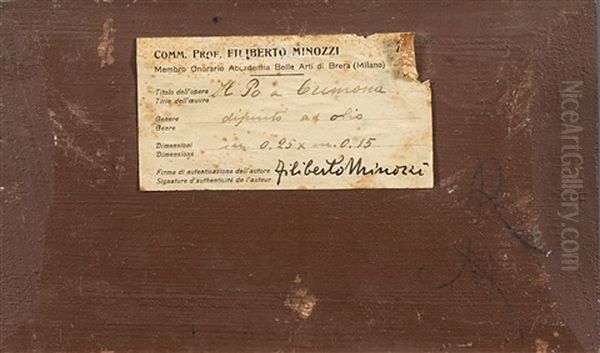 COMM. PROF. FILIBERTO MINOZZI
Membro Onorario Accademia Belle Arti di Brera (Milano)
Titolo dell'opera Il Po a Cremona
Titre dell'œuvre
Genere dipinto ad olio
Genre
Dimensioni m. 0.25 x m. 0.15
Dimensions
Firma di autenticazione dell'autore Filiberto Minozzi
Signature d'authenticité de l'auteur
NiceArtGallery.com